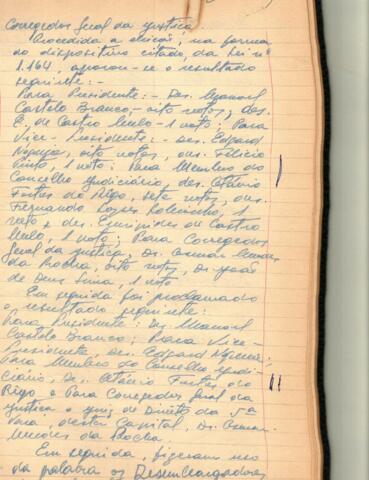 Corregedor Geral da Justiça.
Procedida a eleição, na forma
do dispositivo citado, da Lei nº
1.164, apurou-se o resultado
seguinte:-
Para Presidente:- Des. Manoel
Castelo Branco, oito votos, des.
E. de Castro Melo - 1 voto; Para
Vice-Presidente:- des. Edgard
Nogueira, oito votos, des. Felicio
Pinto, 1 voto; Para Membro do
Conselho Judiciário, des. Otávio
Fortes do Rêgo, sete votos, des.
Fernando Lopes Sobrinho, 1
voto e des. Eurípides de Castro
Melo, 1 voto; Para Corregedor
Geral da Justiça, Dr. Osmar Mendes
da Rocha, oito votos, Dr. João
de Deus Lima, 1 voto
Em seguida foi proclamado
o resultado seguinte:
Para Presidente: Des. Manoel
Castelo Branco; Para Vice-
Presidente, des. Edgard Nogueira;
Para Membro do Conselho Judi-
ciário, Des. Otávio Fortes do
Rêgo e Para Corregedor Geral da
Justiça o Juiz de Direito da 5ª
Vara, desta Capital, Dr. Osmar
Mendes da Rocha.
Em seguida, fizeram uso
da palavra os Desembargadores